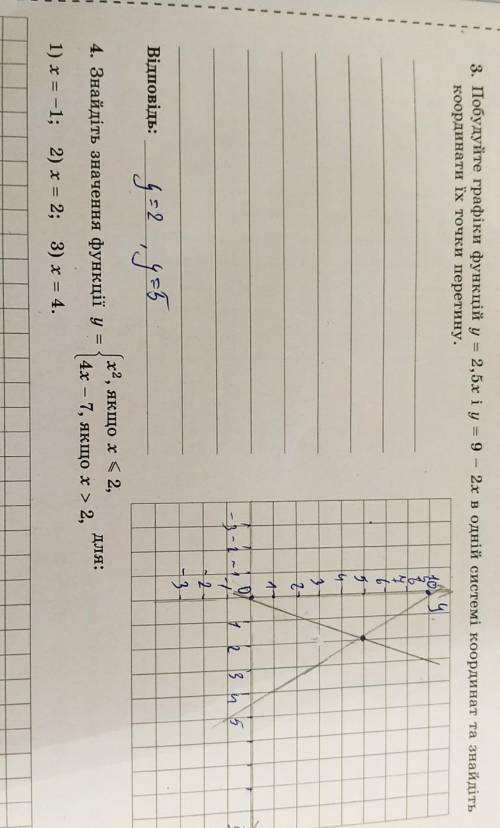 3. Побудуйте графіки функцій y = 2,5x і y = 9 − 2x в одній системі координат та знайдіть
координати їх точки перетину.
y
10
8
7
6
5
4
3
2
1
0
-1
-2
-3
-3 -2 -1 1 2 3 4 5
Відповідь: y=2 , y=5
4. Знайдіть значення функції y = { x², якщо x ⩽ 2,
4x − 7, якщо x > 2, для:
1) x = −1; 2) x = 2; 3) x = 4.